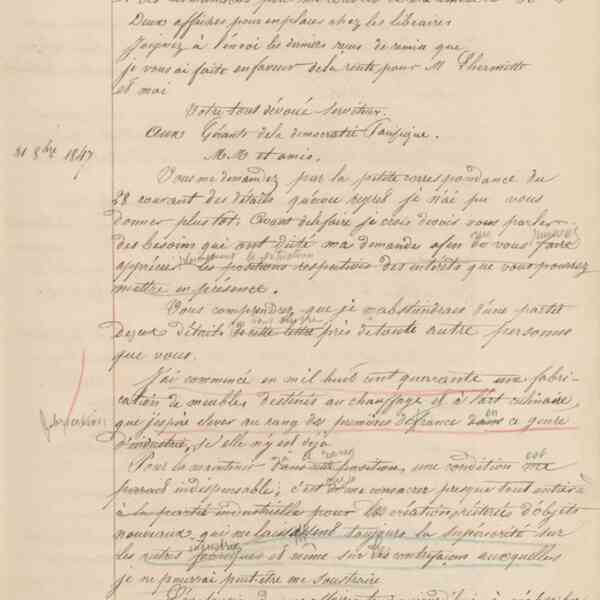 Deux affiches pour en placer chez les libraires
Joignez à l'envoi les derniers reçus de remise que
je vous ai faits en faveur de la rente pour M. Lhermitte
et moi
Votre tout dévoué serviteur.
Aux Gérants de la democratie Pacifique.
31 8bre 1847
M.M et amis,
Vous me demandez par la petite correspondance du
28 courant des détails qu'à mon regret je n'ai pu vous
donner plustot; Avant de le faire je crois devoir vous parler
des besoins qui ont dicté ma demande afin de vous faire
apprécier les positions respectives des intérêts que vous pourrez
mettre en présence.
Vous comprendrez que je m'abstiendrais d'une partie
de ces détails de cette lettre près de toute autre personne
que vous.
J'ai commencé en mil huit cent quarante une fabri-
cation de meubles destinés au chauffage et à l'art culinaire
que j'espère élever au rang des premières de france dans ce genre
d'industrie, si elle n'y est déjà
Pour la maintenir dans cette position, une condition me
parait indispensable; c'est de me consacrer presque tout entier à
à la partie industrielle pour les créations d'objets
nouveaux qui me laissent toujours la supériorité sur
les autres fabriques et même sur les contrefaçons auxquelles
je ne pourrai peut-être me soustraire